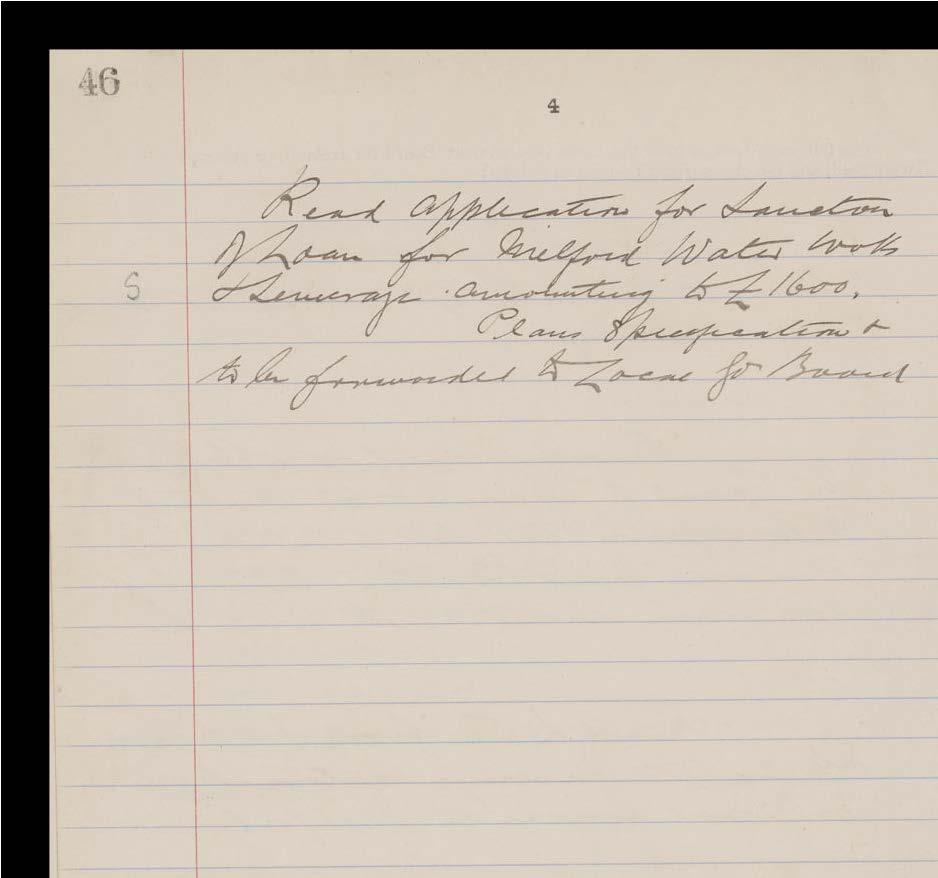 46
4
Read Application for Sanction
of Loan for Milford Water Works
S
& Sewerage amounting to £1600.
Plans Specification &
to be forwarded to Local Go Board